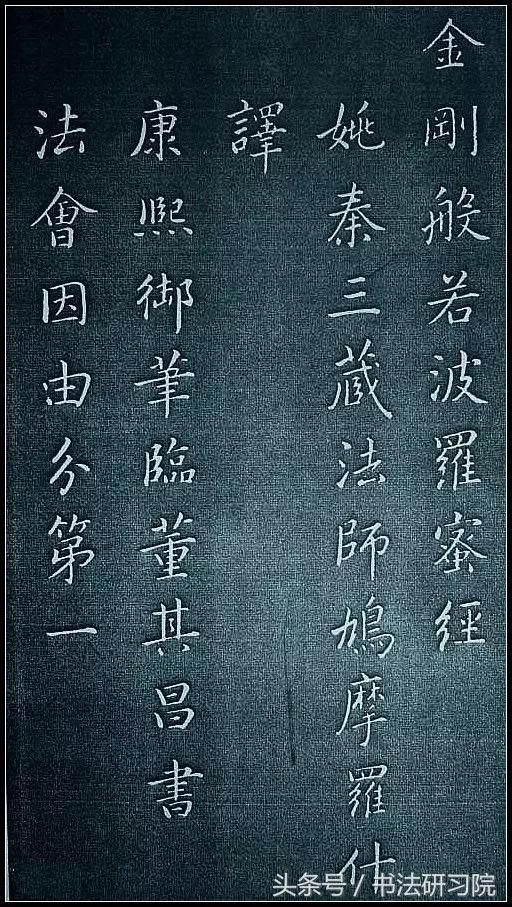 金剛般若波羅蜜經
姚秦三藏法師鳩摩羅什
譯
康熙御筆臨董其昌書
法會因由分第一
头条号 / 书法研习院